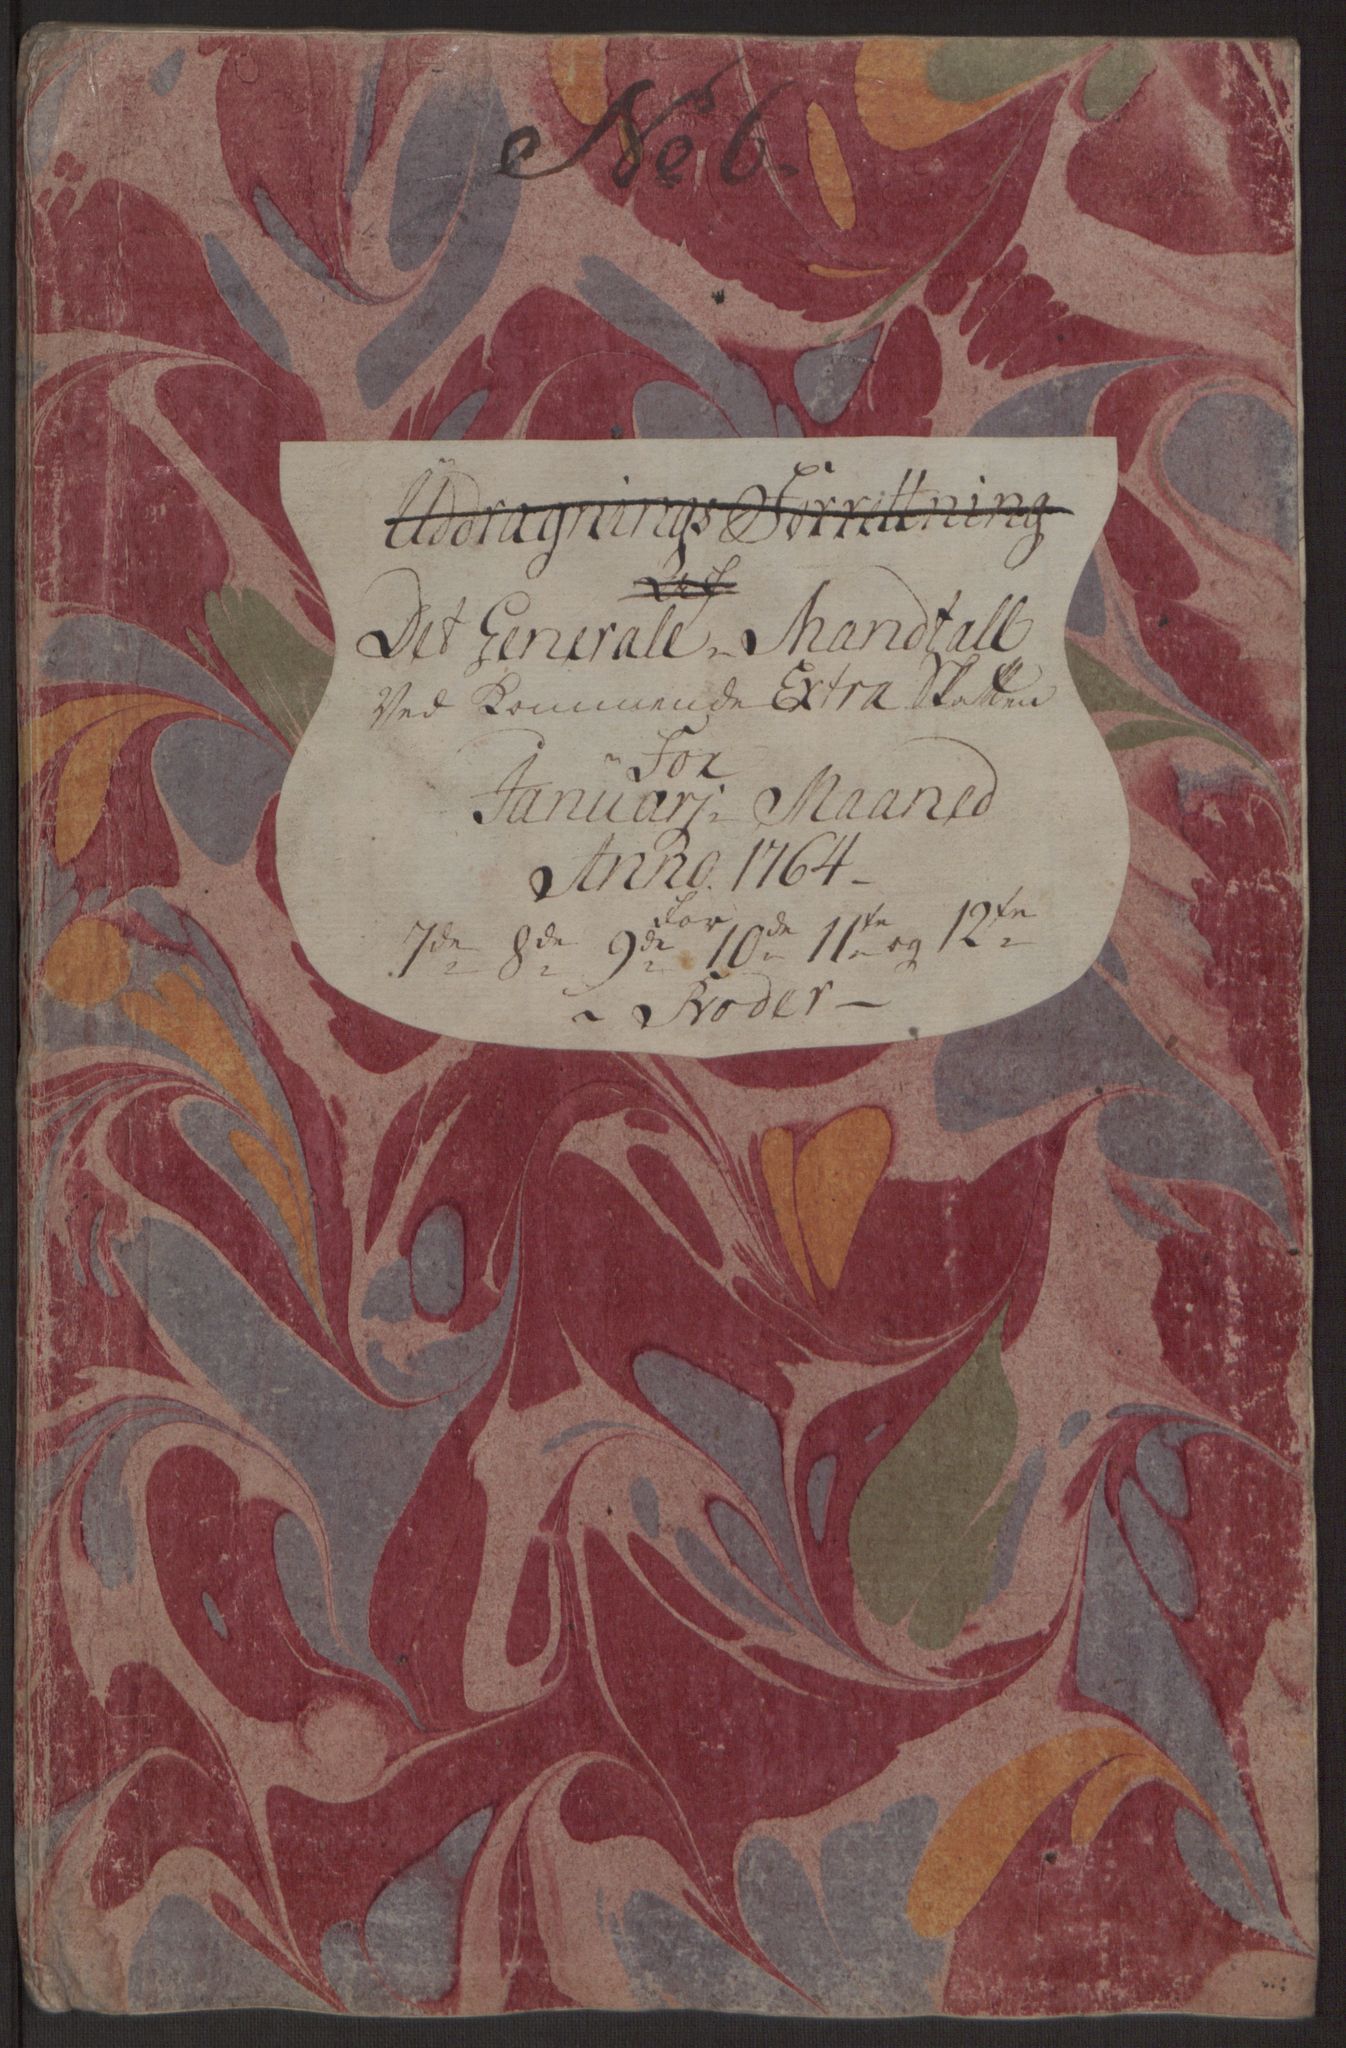 No 6.
Uddragnings Forrettning
Det Generale Mandtall
Ved Kommende Extra Skatten
For
Januarj Maaned
Anno. 1764
For
7de 8de 9de 10de 11te og 12te
Roder